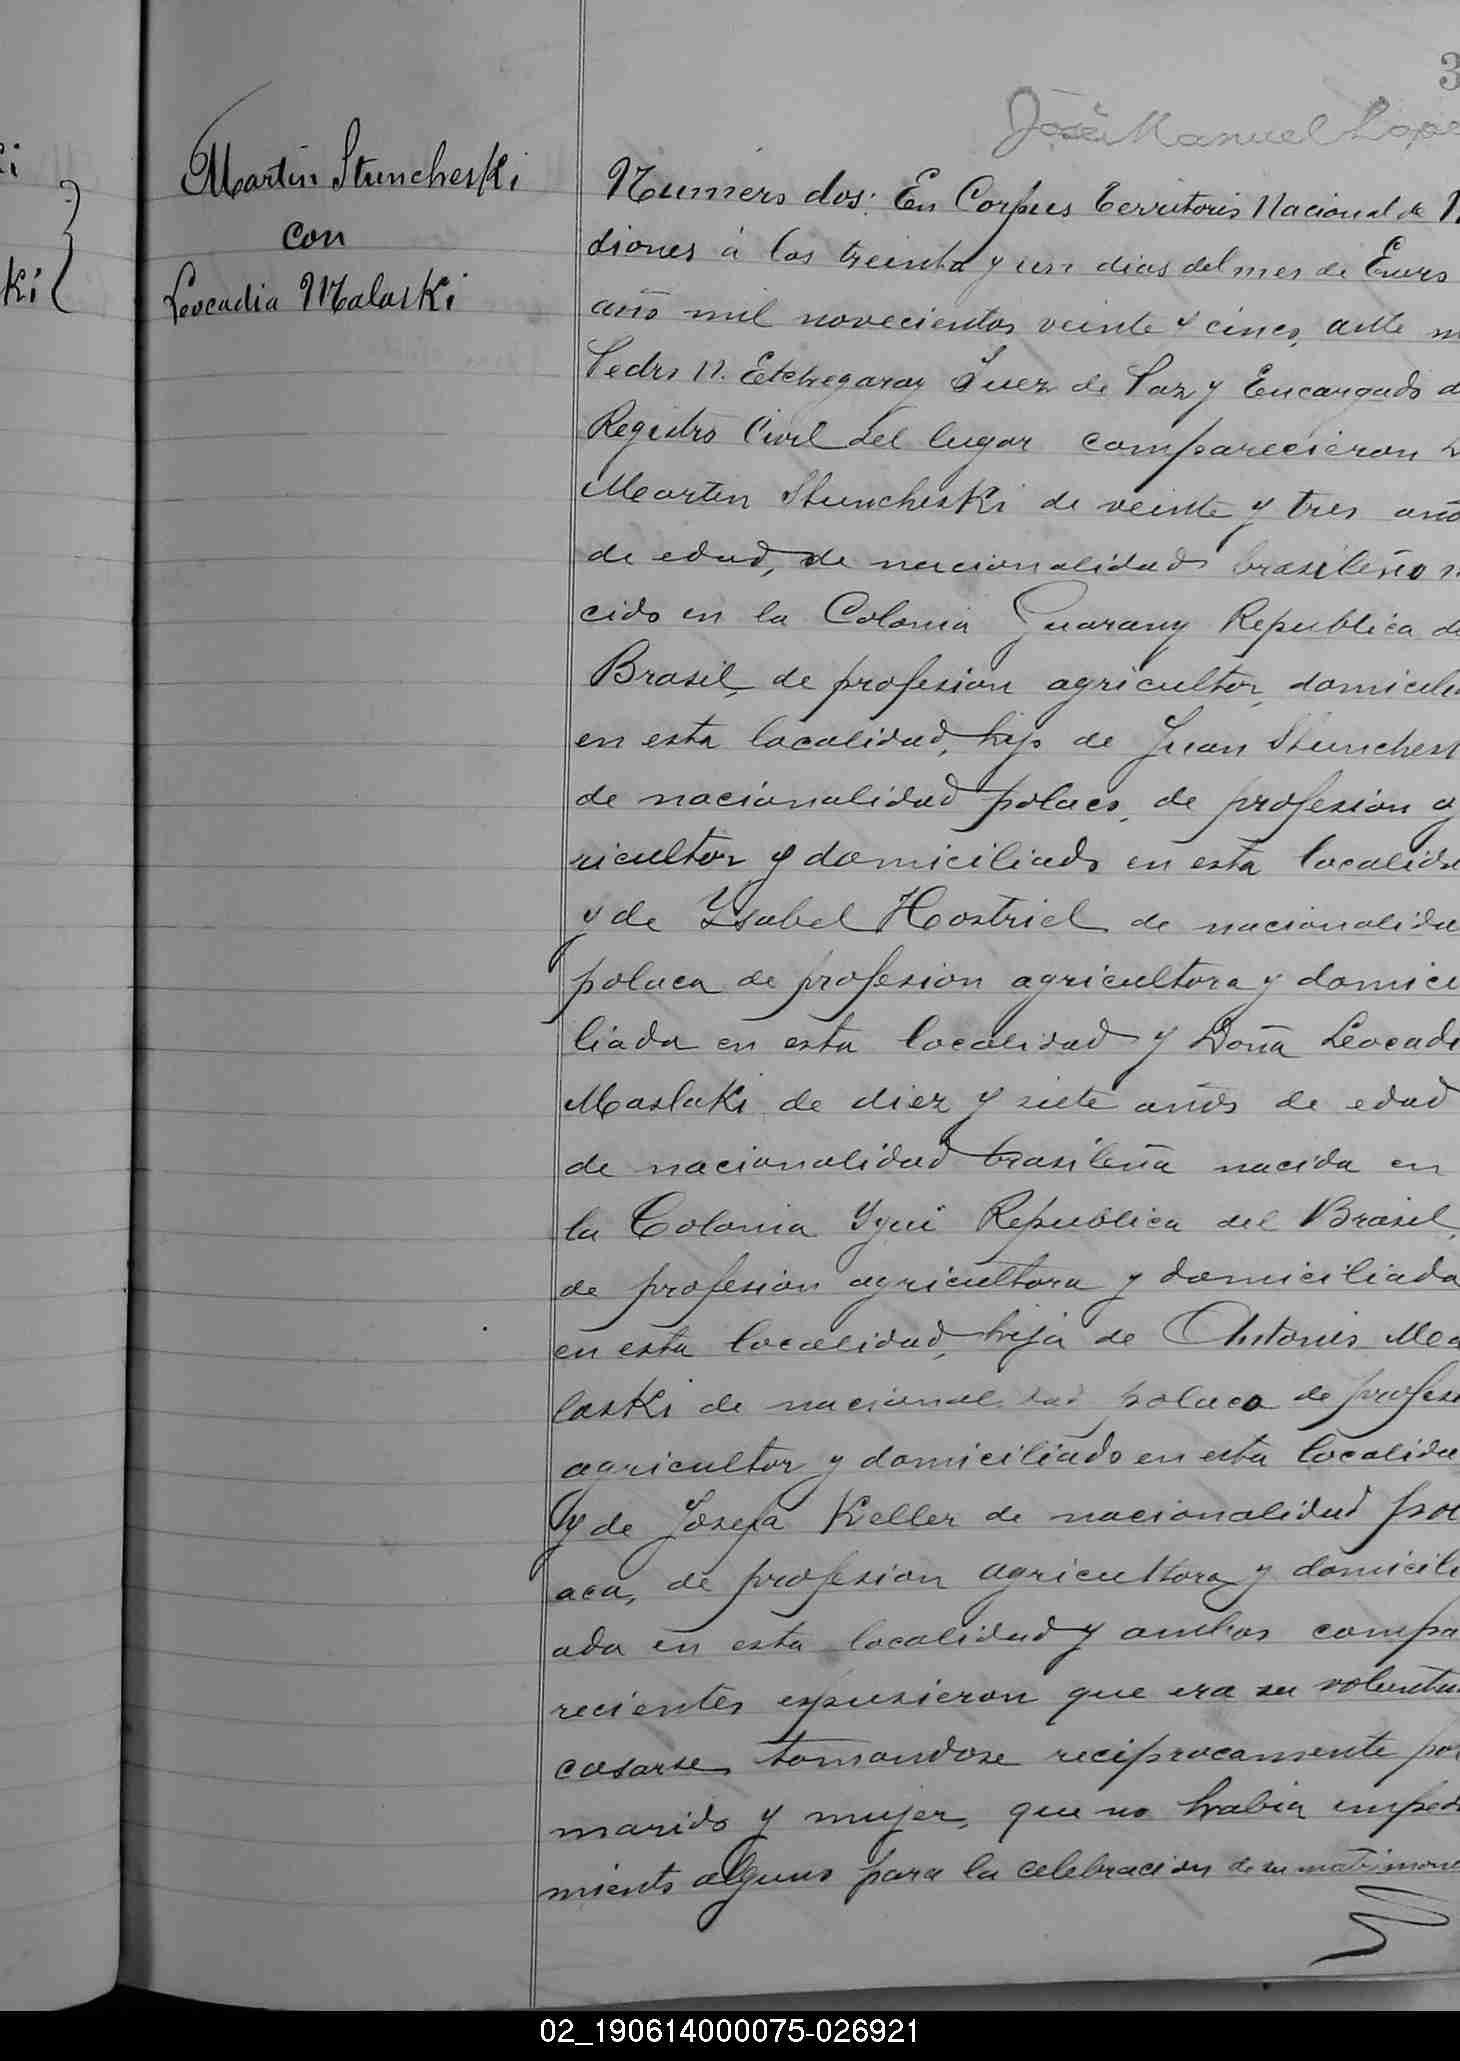 3
José Manuel Lope
ki
ki
Martin Stuncheski
con
Leocadia Malaski
Numero dos: En Corpus Territorio Nacional de M
siones á los treinta y un dias del mes de Enero
año mil novecientos veinte y cinco, ante m
Pedro N. Etchegaray Juez de Paz y Encargado d
Registro Civil del lugar comparecieron D
Martin Stuncheski de veinte y tres año
de edad, de nacionalidad brasileño n
cido en la Colonia Guarany Republica d
Brasil, de profesion agricultor, domicilia
en esta localidad, hijo de Juan Stunchesk
de nacionalidad polaco, de profesion a
ricultor y domiciliado en esta localida
y de Ysabel Hostriel de nacionalida
polaca de profesion agricultora y domici
liada en esta localidad y Doña Leocadi
Maslaki de diez y siete años de edad
de nacionalidad brasileña nacida en
la Colonia Yjui Republica del Brasil,
de profesion agricultora y domiciliada
en esta localidad, hija de Antonio Ma
laski de nacionalidad polaco de profesi
agricultor y domiciliado en esta localida
y de Josefa Keller de nacionalidad pol
aca, de profesion agricultora y domicili
ada en esta localidad y ambos compa
recientes expusieron que era su voluntad
casarse, tomandose reciprocamente por
marido y mujer, que no habia impedi
miento alguno para la celebracion de su matrimoni
02_190614000075-026921